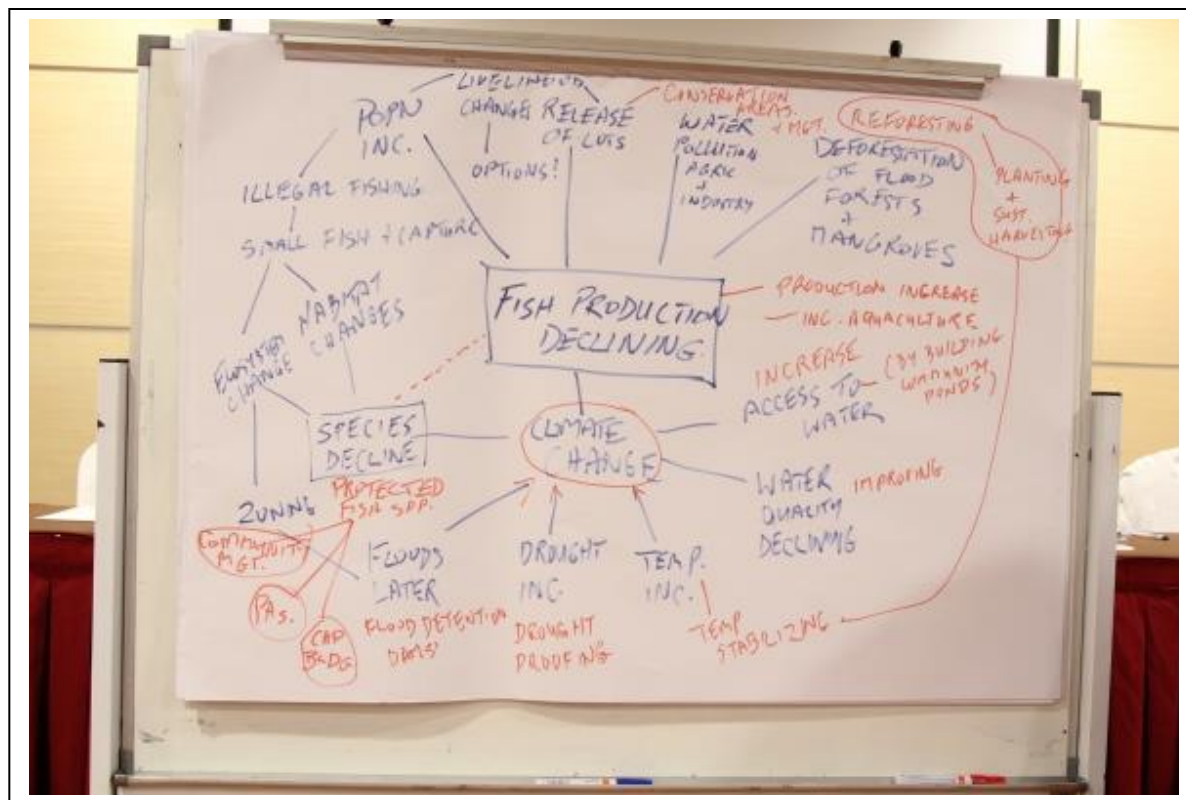 POPN
INC.
LIVELIHOOD
CHANGES
OPTIONS?
RELEASE
OF LOTS
CONSERVATION
AREAS.
+ MGT.
WATER
POLLUTION
AGRIC
+
INDUSTRY
REFORESTING
PLANTING
+
SUST.
HARVESTING
DEFORESTATION
OF FLOOD
FORESTS
+
MANGROVES
ILLEGAL FISHING
SMALL FISH + CAPTURE
HABITAT
CHANGES
ECOSYSTEM
CHANGE
FISH PRODUCTION
DECLINING
PRODUCTION INCREASE
INC. AQUACULTURE
INCREASE
ACCESS TO
WATER
(BY BUILDING
PONDS)
SPECIES
DECLINE
CLIMATE
CHANGE
WATER
QUALITY
DECLINING
IMPROVING
PROTECTED
FISH SPP.
ZONING
COMMUNITY
MGT.
PAs.
FLOODS
LATER
FLOOD DETENTION
DAMS
DROUGHT
INC.
DROUGHT
PROOFING
TEMP.
INC.
TEMP
STABILIZING